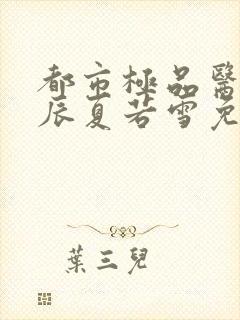 都市極品醫
辰夏若雪免
葉三兒